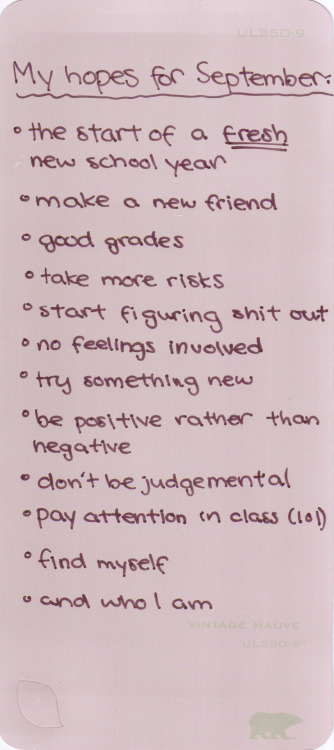 UL250-9
My hopes for September:
• the start of a fresh
new school year
• make a new friend
• good grades
• take more risks
• start figuring shit out
• no feelings involved
• try something new
• be positive rather than
negative
• don't be judgemental
• pay attention in class (lol)
• find myself
• and who I am
VINTAGE MAUVE
UL250-9